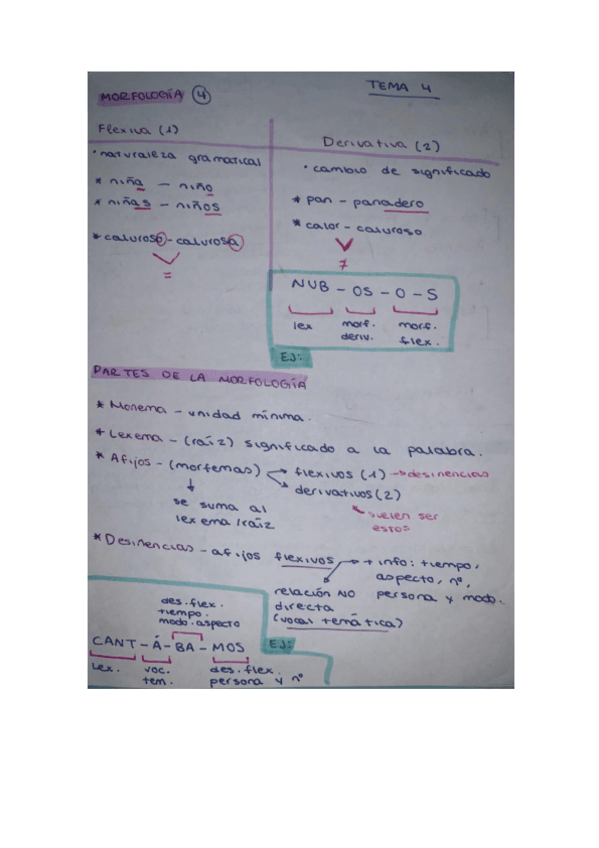 TEMA 4
MORFOLOGÍA 4
Flexiva (1)
· naturaleza gramatical
* niña — niño
* niñas — niños
* caluroso - calurosa
=
Derivativa (2)
· cambio de significado
* pan - panadero
* calor - caluroso
≠
NUB - OS - O - S
lex morf. deriv. morf. flex.
EJ:
PARTES DE LA MORFOLOGÍA
* Monema - unidad mínima.
* Lexema - (raíz) significado a la palabra.
* Afijos - (morfemas) → flexivos (1) → desinencias
→ derivativos (2)
se suma al
lexema/raíz
suelen ser
estos
* Desinencias - afijos flexivos → + info: tiempo,
aspecto, nº,
persona y modo.
relación NO
directa
(vocal temática)
des. flex.
tiempo.
modo. aspecto
CANT - Á - BA - MOS
EJ:
lex. voc. tem. des. flex. persona y nº